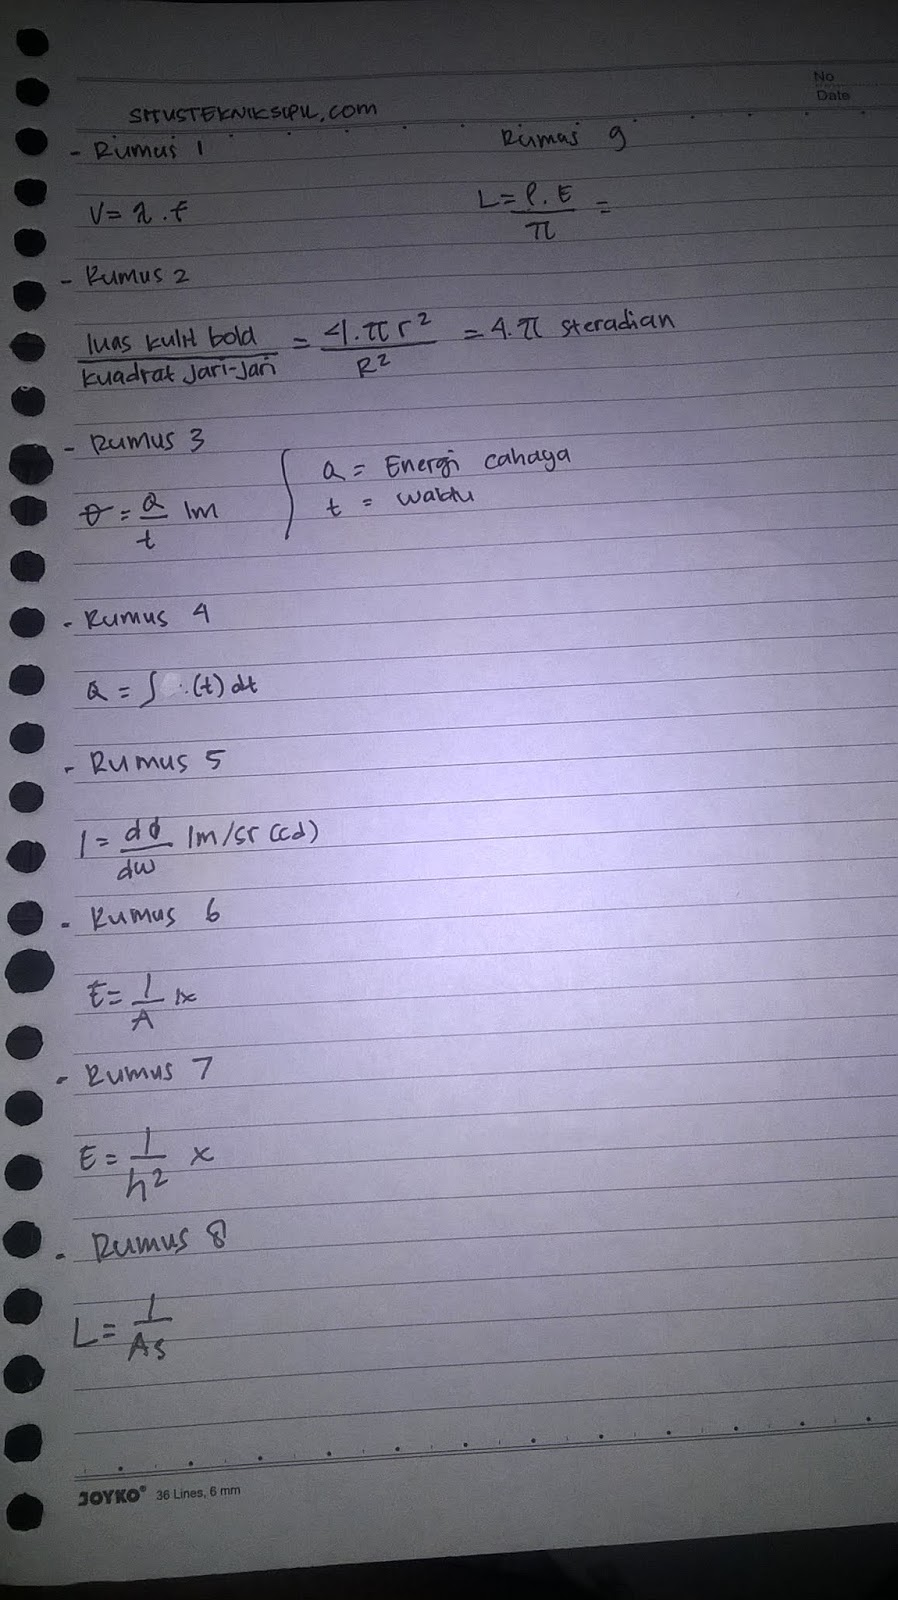 SITUSTEKNIKSIPIL.com
No
Date
- Rumus 1
V = λ . f
- Rumus 2
luas kulit bold / kuadrat Jari-Jari = 4.π r² / R² = 4.π steradian
- Rumus 3
θ = Q / t lm
Q = Energi cahaya
t = waktu
- Rumus 4
Q = ∫ . (t) dt
- Rumus 5
I = dϕ / dω lm/sr (cd)
- Rumus 6
E = I / A lx
- Rumus 7
E = I / h² x
- Rumus 8
L = I / As
Rumus 9
L = ρ . E / π =
JOYKO® 36 Lines, 6 mm